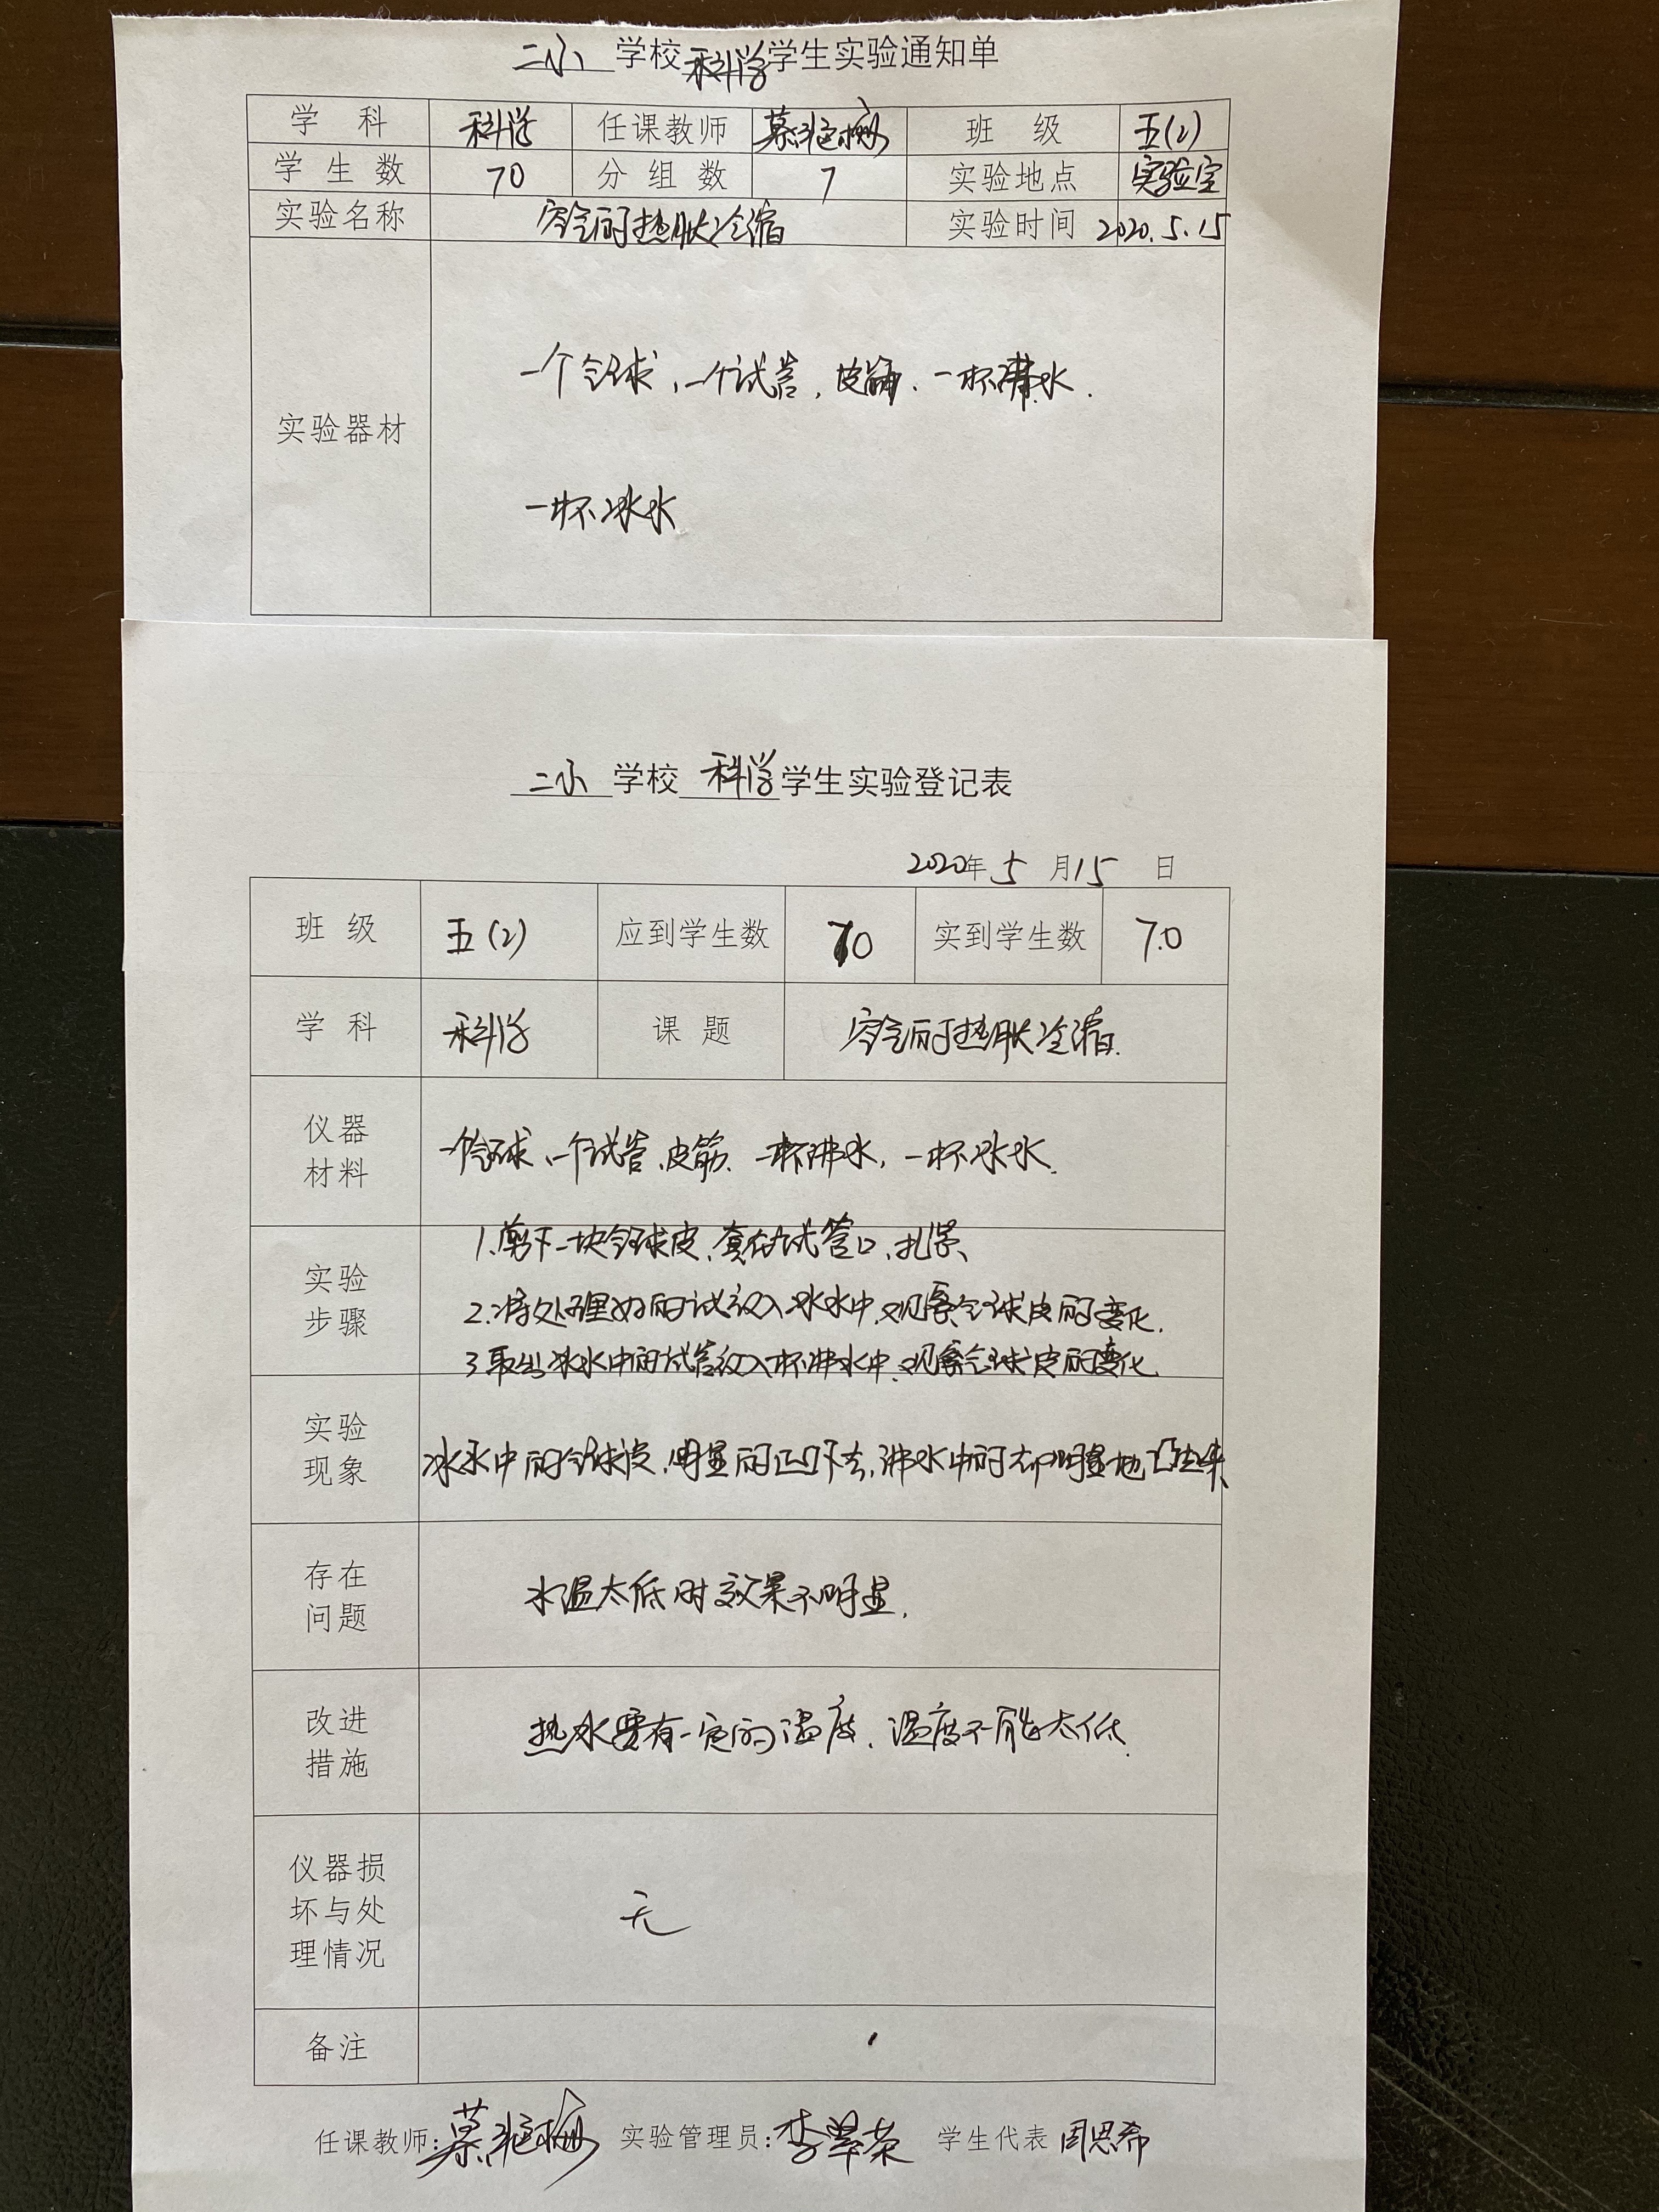 二小 学校 科学 学生实验通知单
学 科 科学 任课教师 班 级 五(2)
学 生 数 70 分 组 数 7 实验地点 实验室
实验名称 空气的热胀冷缩 实验时间 2020.5.15
一个气球、一个试管,皮筋、一杯沸水.
实验器材
一杯冰水
二小 学校 科学 学生实验登记表
2020年 5 月 15 日
班 级 五(2) 应到学生数 70 实到学生数 70
学 科 科学 课 题 空气的热胀冷缩.
仪器
材料
一个气球、一个试管、皮筋、一杯沸水,一杯冰水.
实验
步骤
1.剪下一块气球皮,套在试管口,扎紧、
2.将处理好的试放入冰水中,观察气球皮的变化.
3.取出冰水中的试管放入杯沸水中,观察气球皮的变化.
实验
现象
冰水中的气球皮,明显的凹下去,沸水中的 明显地凸出来、
存在
问题
水温太低时效果不明显.
改进
措施
热水要有一定的温度、温度不能太低.
仪器损
坏与处
理情况
无
备注
任课教师: 实验管理员:李翠荣 学生代表 周思希